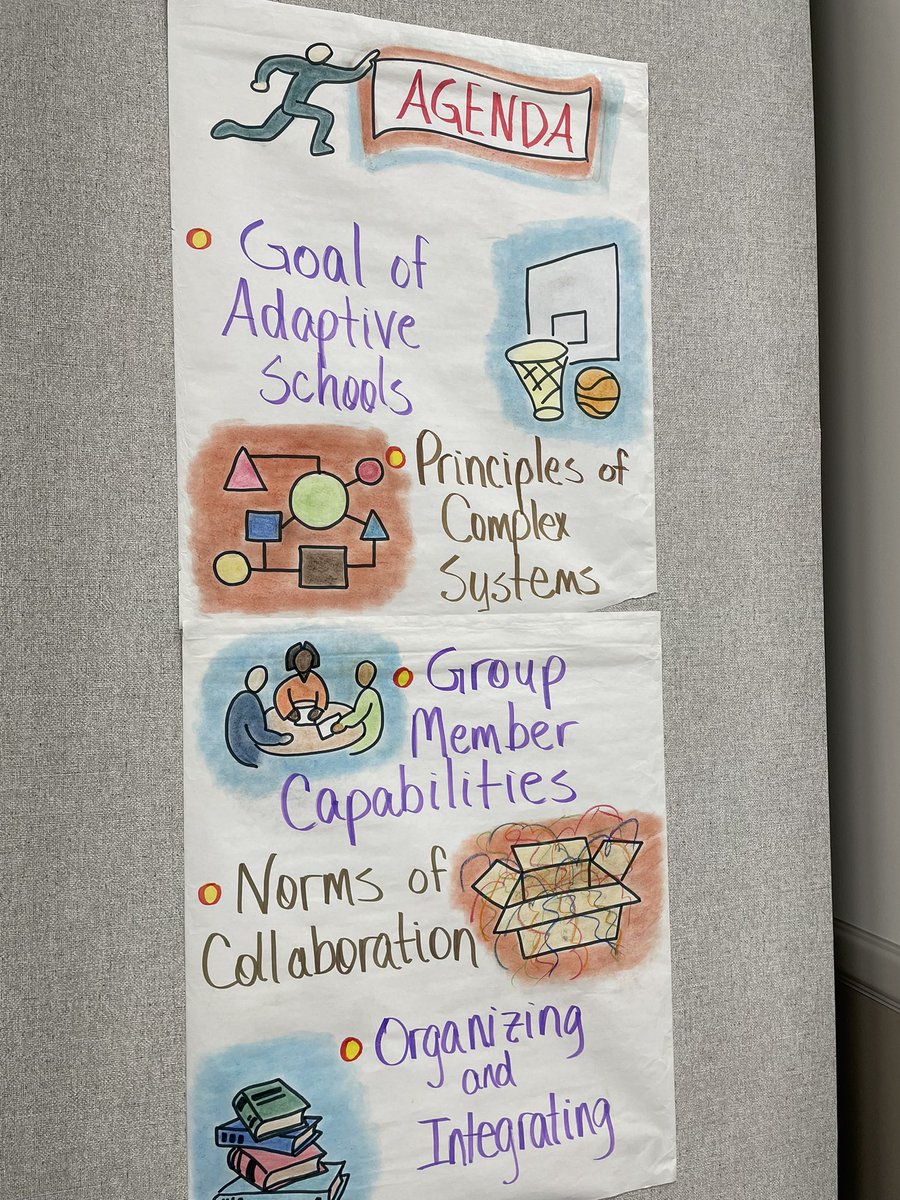 AGENDA
Goal of
Adaptive
Schools
Principles of
Complex
Systems
Group
Member
Capabilities
Norms of
Collaboration
Organizing
and
Integrating